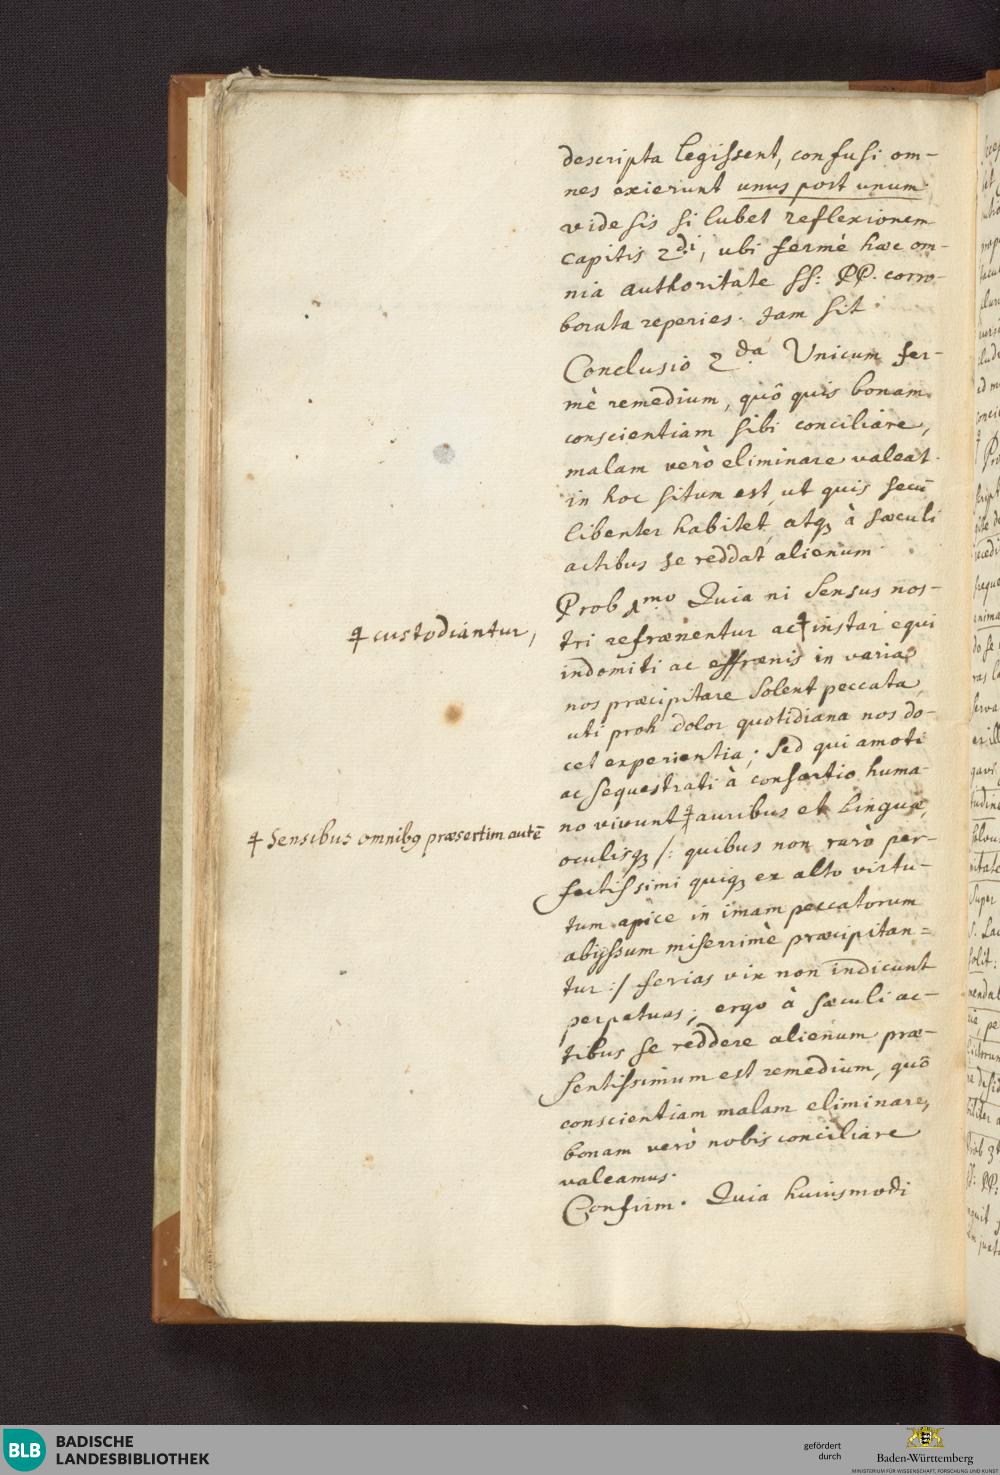 descripta legissent, confusi om-
nes exierunt unus post unum
videsis si lubet reflexionem
capitis 2di, ubi fermè hæc om-
nia authoritate SS: PP. corro-
borata reperies. Jam sit
Conclusio 2da Unicum fer-
mè remedium, quô quis bonam
conscientiam sibi conciliare,
malam verò eliminare valeat
in hoc situm est, ut quis secū
libenter habitet, atq3 à sæculi
actibus se reddat alienum
Prob 1mo Quia ni Sensus nos-
‡ custodiantur,
tri refrænentur ac ‡ instar equi
indomiti ac effrænis in varia
nos præcipitare solent peccata,
uti proh dolor quotidiana nos do-
cet experientia; Sed qui amoti
ac sequestrati à consortio huma-
‡ Sensibus omnib9 præsertim autē
no vivunt ‡ auribus et linguæ,
oculisq3 /: quibus non rarò per-
fectissimi quiq3 ex alto virtu-
tum apice in imam peccatorum
abyssum miserrimè præcipitan=
tur :/ ferias vix non indicunt
perpetuas; ergo à sæculi ac-
tibus se reddere alienum præ-
sentissimum est remedium, quô
conscientiam malam eliminare,
bonam verò nobis conciliare
valeamus.
Confirm. Quia huiusmodi
BLB BADISCHE
LANDESBIBLIOTHEK
gefördert
durch
Baden-Württemberg
MINISTERIUM FÜR WISSENSCHAFT, FORSCHUNG UND KUNST